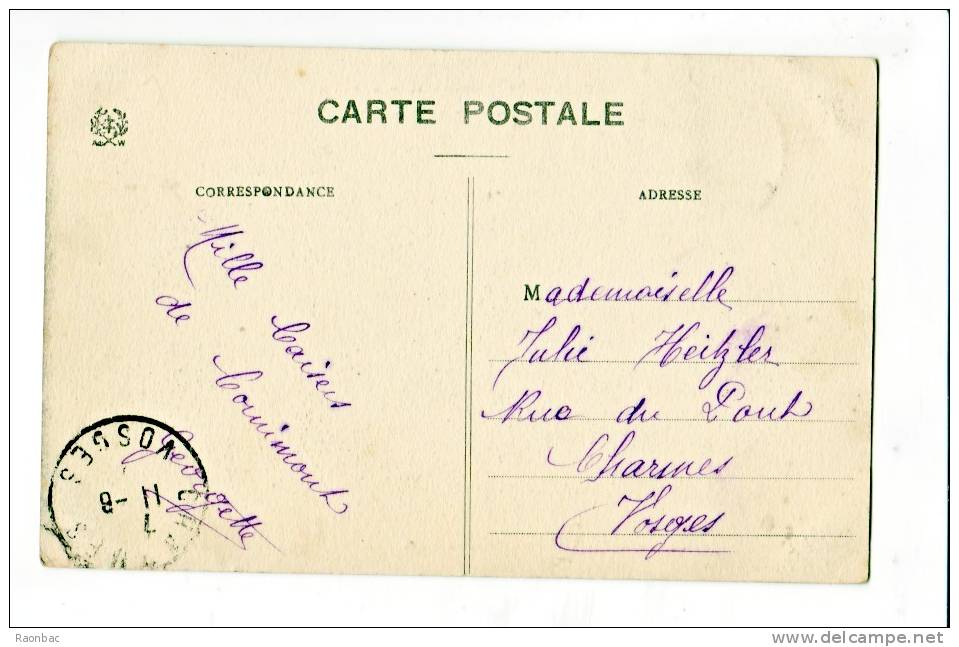 CARTE POSTALE
A. W
CORRESPONDANCE
Mille baisers
de Cornimont
Georgette
VOSGES
11 -8
ADRESSE
Mademoiselle
Julie Heitzler
Rue du Pont
Charmes
Vosges
Raonbac
www.delcampe.net